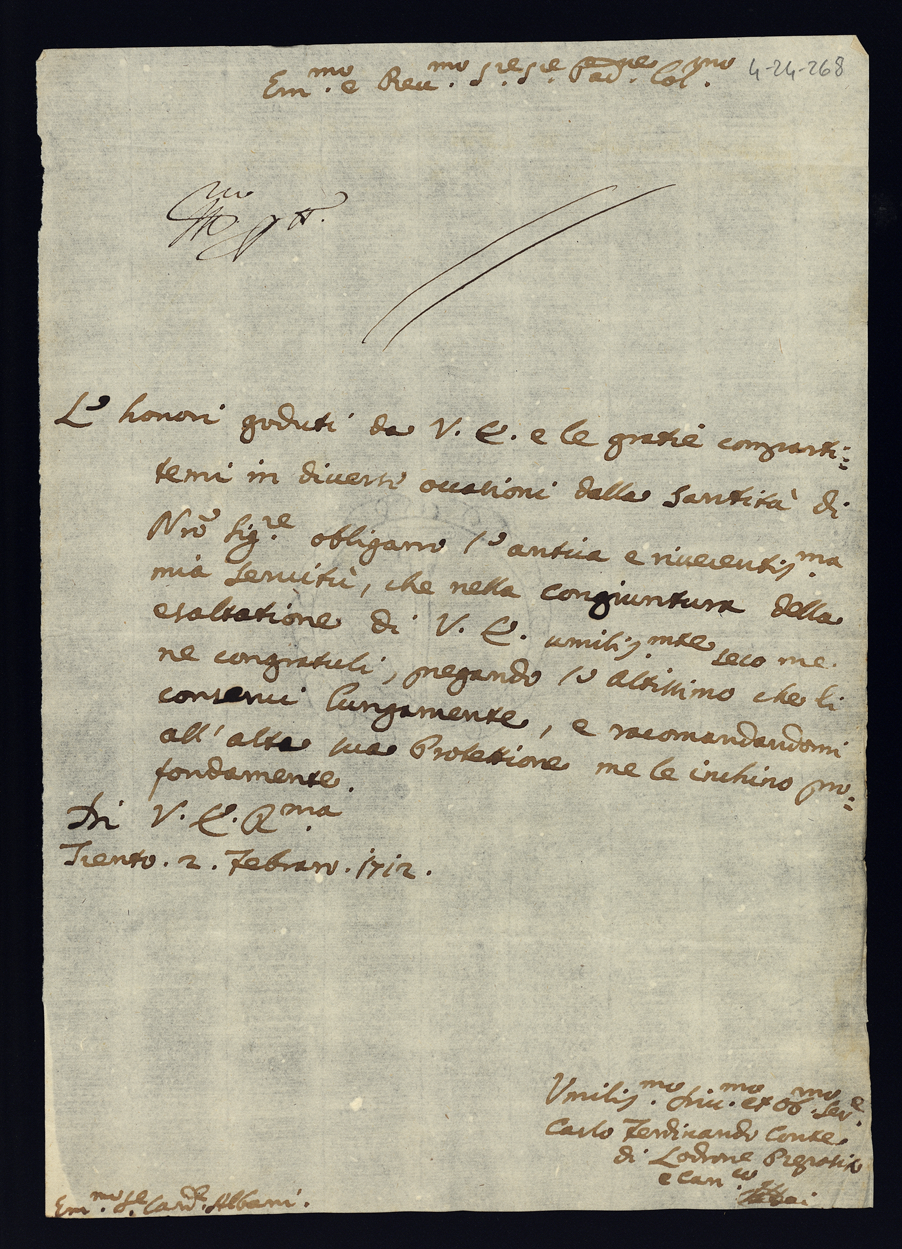 4-24-268
Em.mo e Reu.mo S.re S.re Pad.ne Col.mo
L'honori goduti da V. E. e le gratie comparti=
temi in diuerse occasioni dalla Santità di
Nro Sig.re obligano l'antica e riuerentis.ma
mia seruitù, che nella congiuntura della
esaltatione di V. E. umilis.mte seco me
ne congratuli, pregando l'Altissimo che li
conserui lungamente, e racomandandomi
all'alta sua Protettione me le inchino pro=
fondamente.
Di V. E. R.ma
Trento. 2. Febraro. 1712.
Umilis.mo Diu.mo et Ob.mo Ser.e
Carlo Ferdinando Conte
di Lodrone Preposito
e Can.co
Em.mo S.re Card.e Albani.